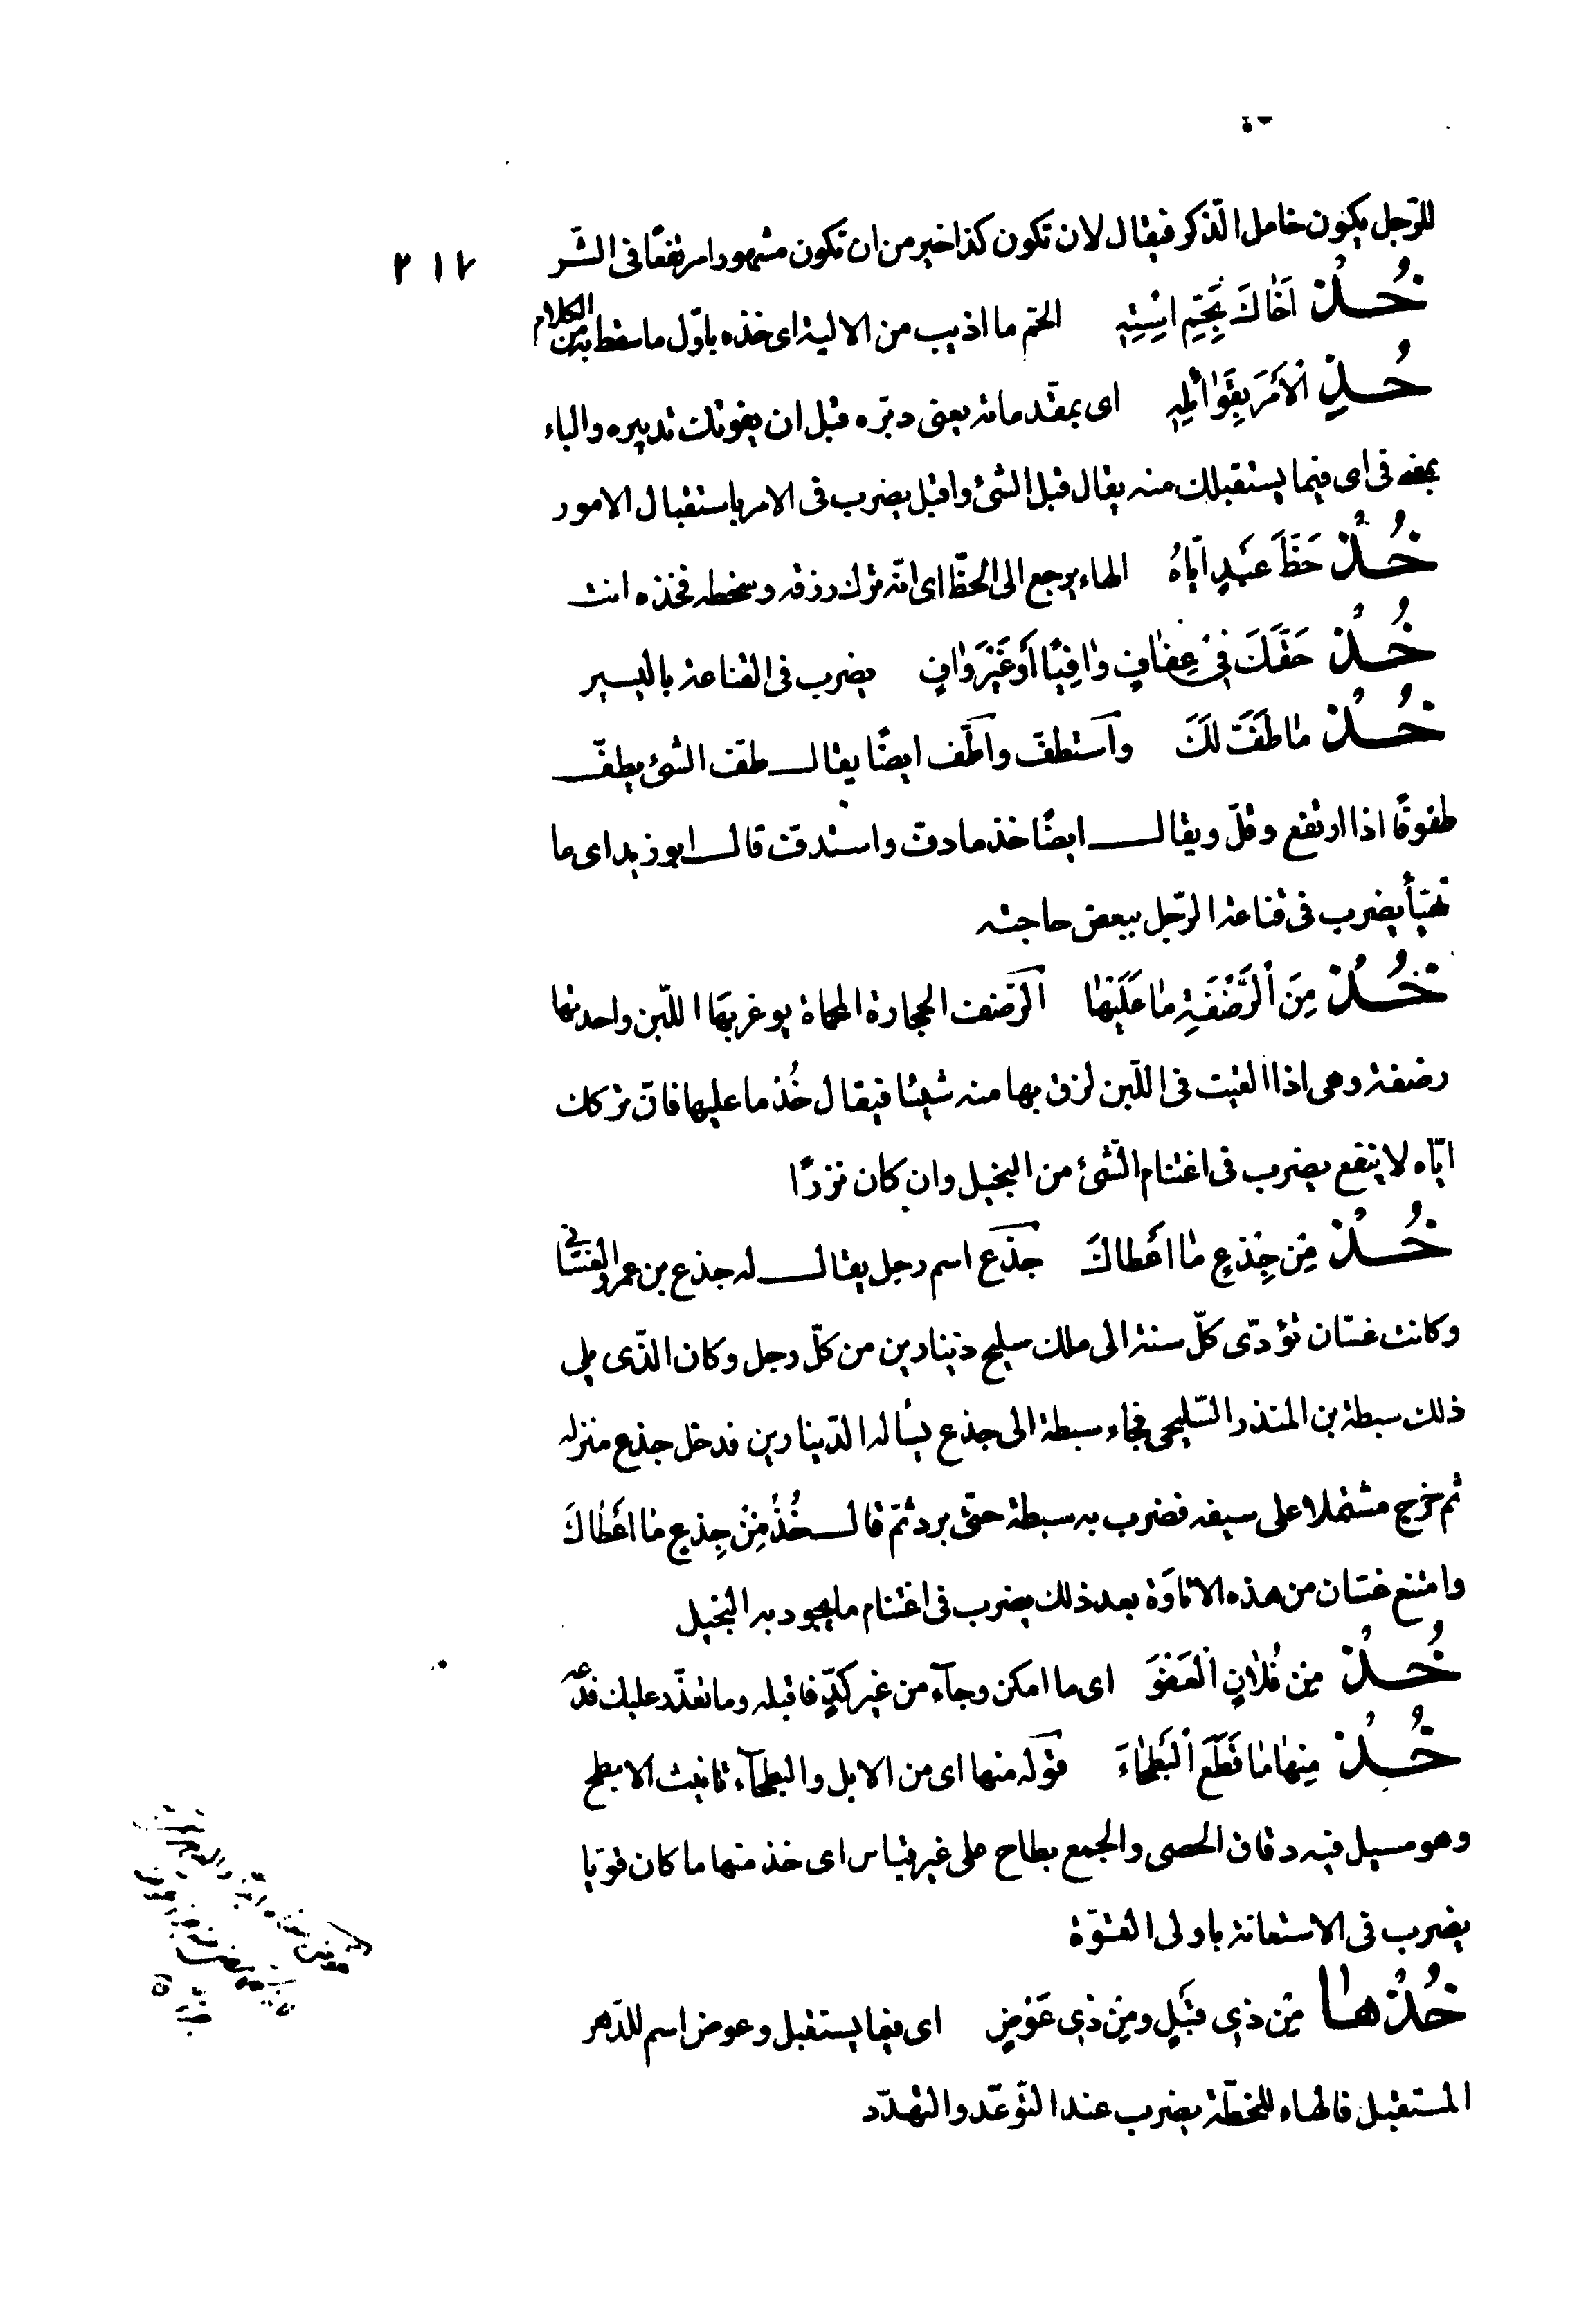 للرّجل يكون خامل الذّكر فيقال لان تكون كذا خير من ان تكون مشهورا مرتفعًا فى الشّر
٢١٧
خُذْ اَخَاكَ بِحَمِّ اسْتِهِ الحمّ ما اذيب من الالية اى خذه باوّل ما سقط به من الكلام
خُذِ الْاَمْرَ بِقَوَابِلِهِ اى بمقدماته يعنى دبّره قبل ان يفوتك تدبيره والباء
بمعنى فى اى فيما يستقبلك منه يقال قبل الشئ واقبل يضرب فى الامر باستقبال الامور
خُذْ حَظَّ عَبْدٍ اَبَاهُ الهاء يرجع الى الحظّ اى انّه ترك رزقه وسخطه فخذه انت
خُذْ حَقَّكَ فِى عِفَافٍ وَافِيًا اَوْ غَيْرَ وَافٍ يضرب فى القناعة باليسير
خُذْ مَا طَفَّ لَكَ واستطفّ واطفّ ايضًا يقال طفّ الشئ يطفّ
طفوفًا اذا ارتفع وقلّ ويقال ايضًا خذ ما دفّ واستدفّ قال ابو زيد اى ما
تهيّأ يضرب فى قناعة الرّجل ببعض حاجته
خُذْ مِنَ الرَّضْفَةِ مَا عَلَيْهَا الرّضف الحجارة المحماة يوغر بها اللّبن واحدتها
رضفة وهى اذا القيت فى اللّبن لزق بها منه شيئا فيقال خُذ ما عليها فانّ تركك
ايّاه لا ينفع يضرب فى اغتنام الشّئ من البخيل وان كان نزرًا
خُذْ مِنْ جِذْعٍ مَا اَعْطَاكَ جذع اسم رجل يقال له جذع بن عمرو الغسّانى
وكانت غسّان تؤدّى كلّ سنة الى ملك سليح دينارين من كلّ رجل وكان الذّى يلى
ذلك سبطة بن المنذر السّليحى فجاء سبطة الى جذع يسأله الدّينارين فدخل جذع منزله
ثم خرج مشتملا على سيفه فضرب به سبطة حتّى برد ثمّ قال خُذْ مِنْ جِذعٍ مَا اَعْطَاكَ
وامتنع غسّان من هذه الاتاوَة بعد ذلك يضرب فى اغتنام ما يجود به البخيل
خُذْ مِنْ فُلَانٍ الْعَفْوَ اى ما امكن وجآء من غير كدٍّ فاقبله وما تعذّر عليك فدعه
خُذْ مِنْهَا مَا قَطَعَ الْبَطْحَاءَ قوله منها اى من الابل والبطحآء تانيث الابطح
وهو مسيل فيه دقاق الحصى والجمع بطاح على غير قياس اى خذ منها ما كان قويّا
يضرب فى الاستعانة باولى القوّة
خُذْهَا مِنْ ذِى قَبَلٍ وَمِنْ ذِى عَوْضٍ اى فيما يستقبل وعوض اسم للدّهر
المستقبل فالهاء للخطّة يضرب عند التّوعّد والتّهدّد